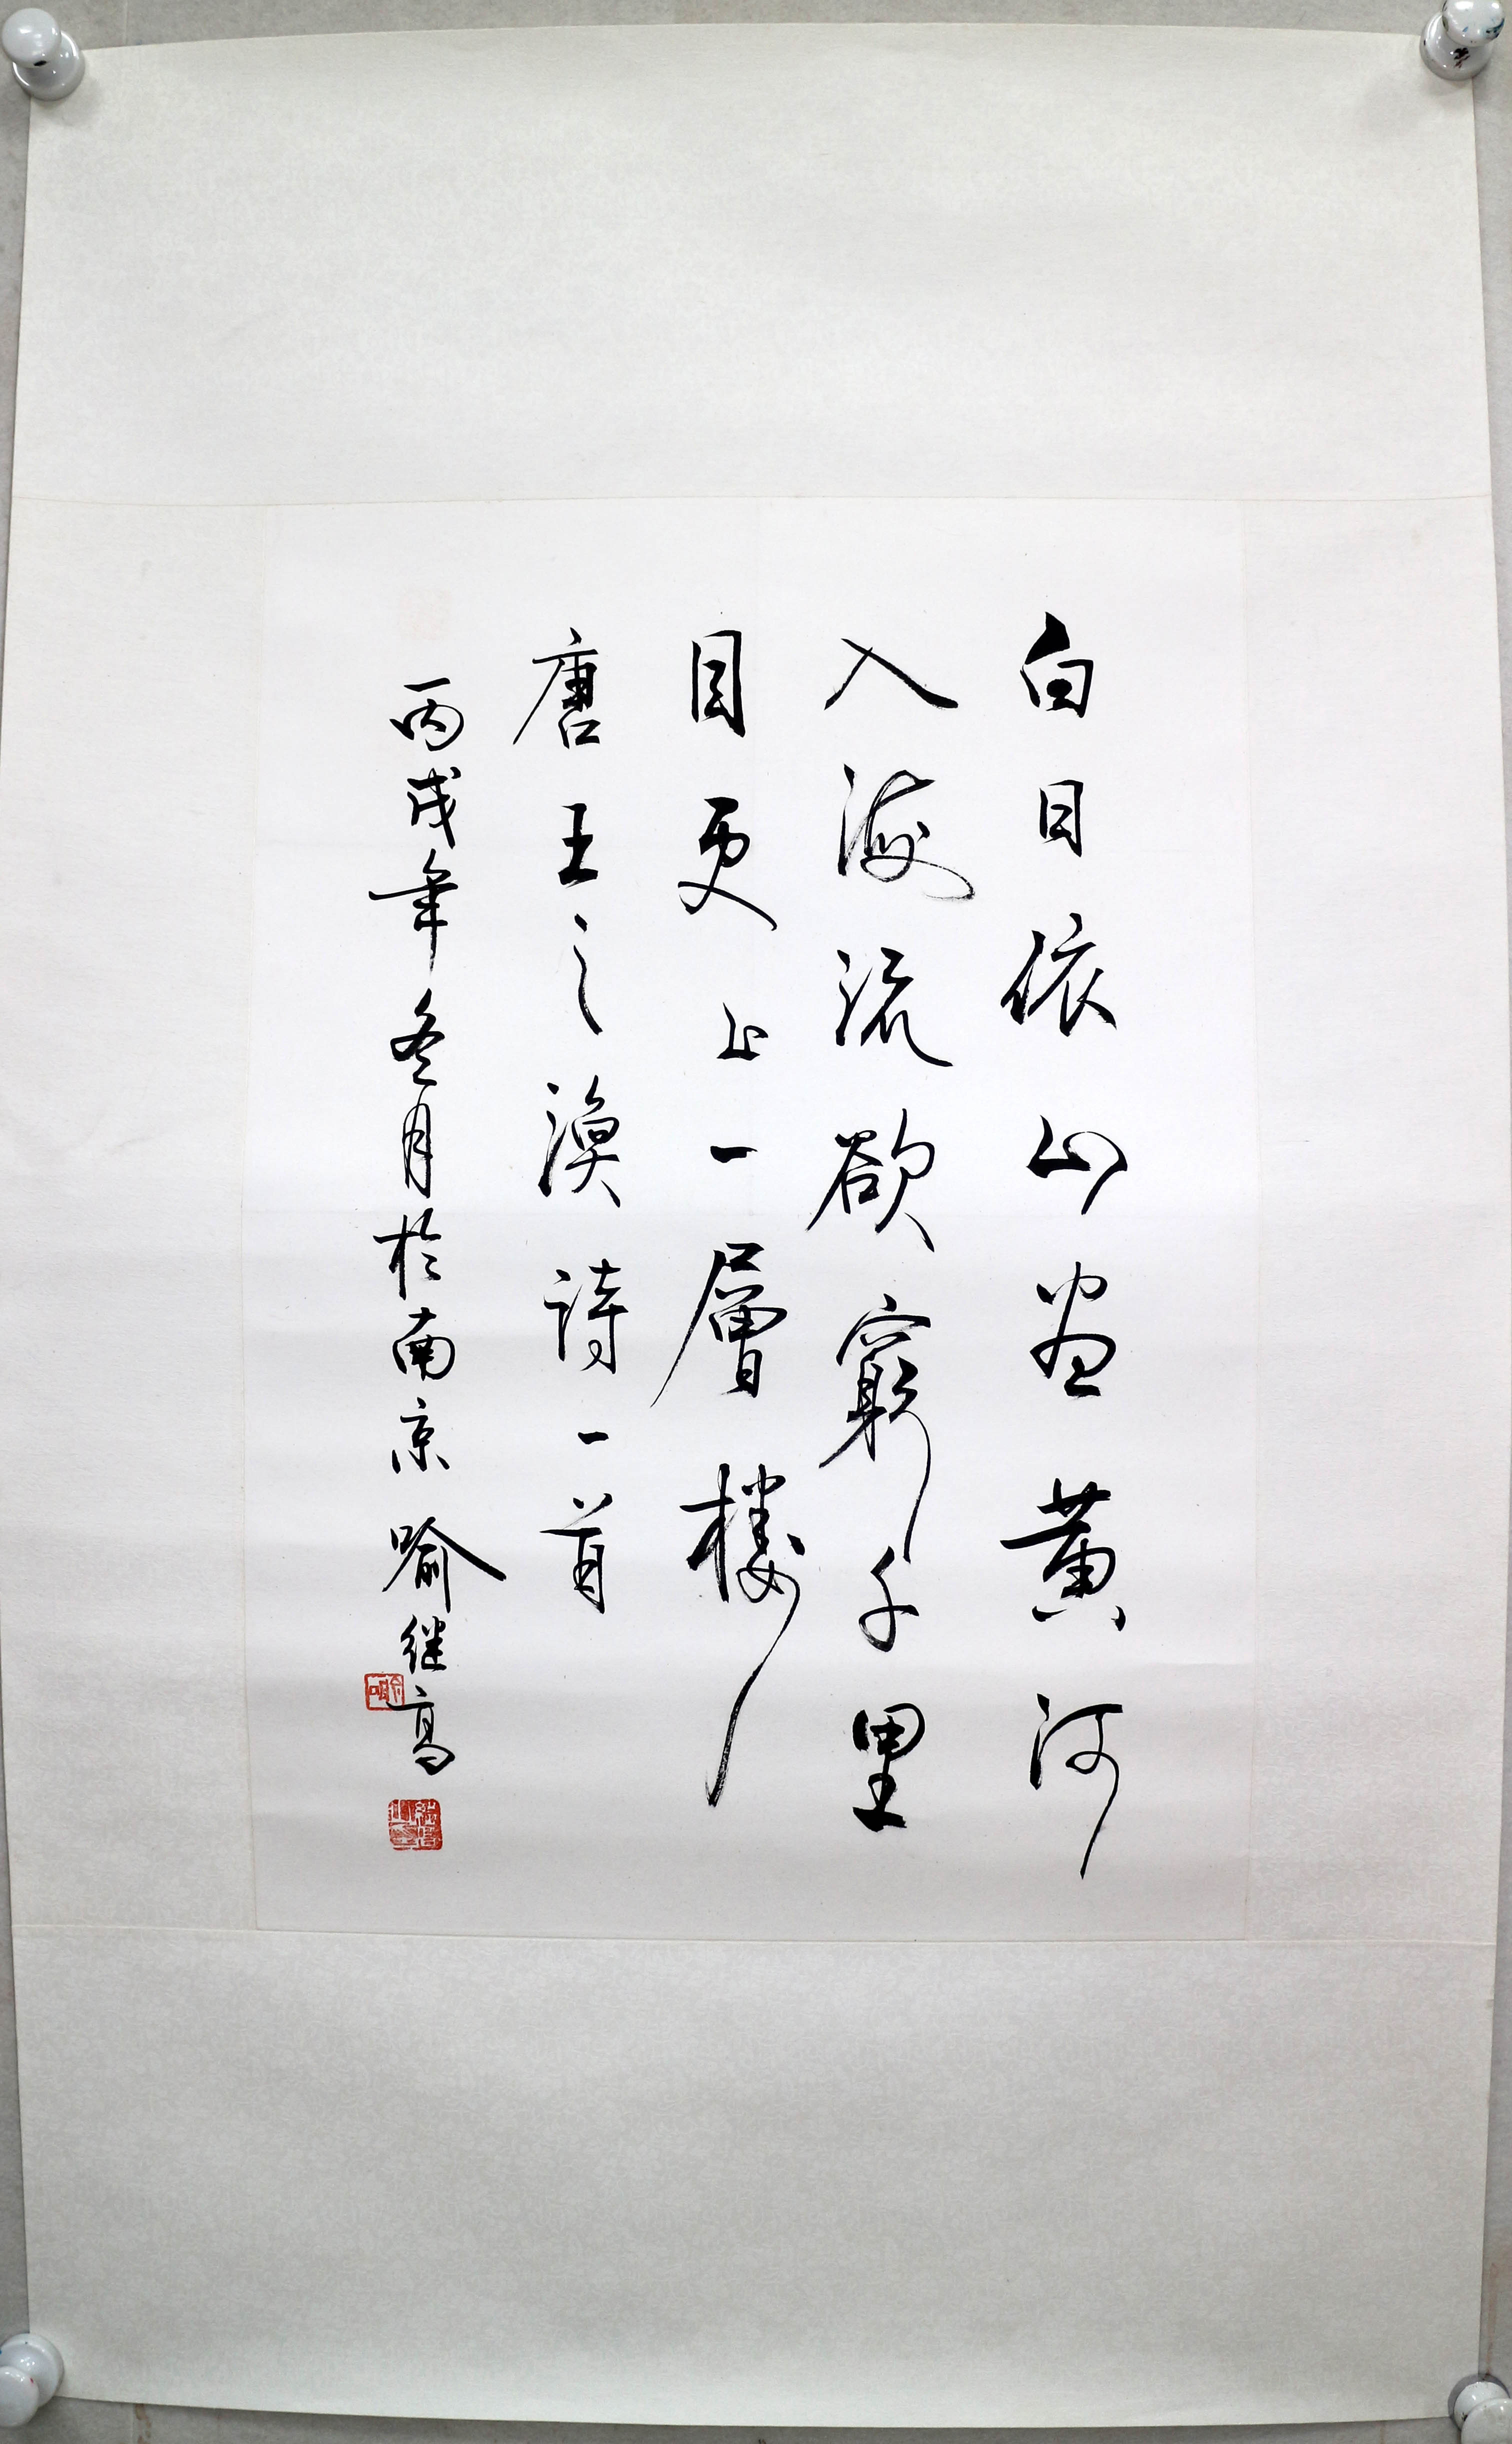 白日依山尽黄河
入海流欲窮千里
目更上一層樓
唐王之渙詩一首
丙戌年冬月於南京喻继高